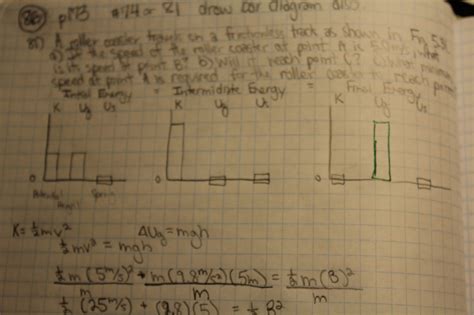 86 p173 #74-81 draw bar diagram also
A roller coaster travels on a frictionless track as shown in Fig 5.38
a) If the speed of the roller coaster at point A is 5.0 m/s, what
is its speed at point B? b) Will it reach point C? c) What
speed at point A is required for the roller coaster to reach point
Initial Energy = Intermidiate Energy = Final Energy
K Ug Us K Ug Us K Ug Us
0 0 0
Potential Spring
K=½mv² ΔUg=mgh
½mv² = mgh
½m(5m/s)² + m(9.8m/s²)(5m) = ½m(B)²
m m
½(25m/s) + (9.8)(5) = ½B²